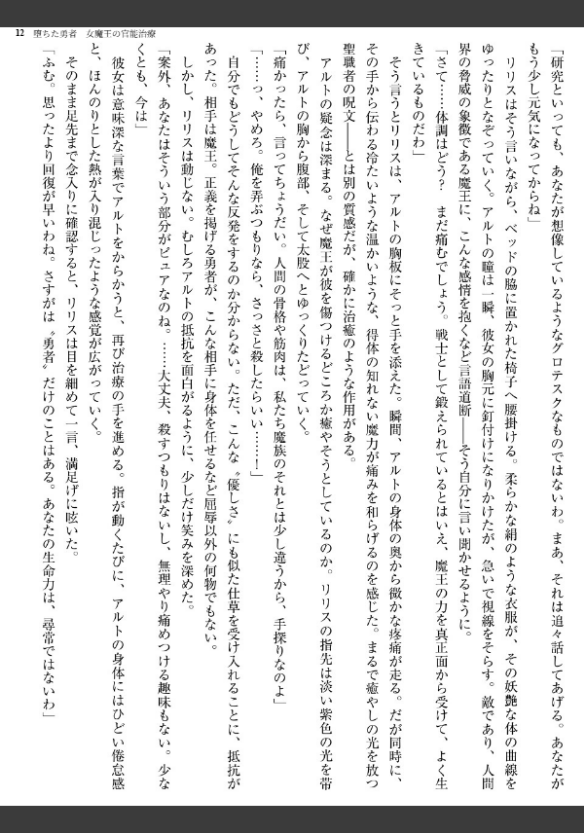 12 堕ちた勇者　女魔王の官能治療
「研究といっても、あなたが想像しているようなグロテスクなものではないわ。まあ、それは追々話してあげる。あなたが
もう少し元気になってからね」
　リリスはそう言いながら、ベッドの脇に置かれた椅子へ腰掛ける。柔らかな絹のような衣服が、その妖艶な体の曲線を
ゆったりとなぞっていく。アルトの瞳は一瞬、彼女の胸元に釘付けになりかけたが、急いで視線をそらす。敵であり、人間
界の脅威の象徴である魔王に、こんな感情を抱くなど言語道断――そう自分に言い聞かせるように。
「さて……体調はどう？　まだ痛むでしょう。戦士として鍛えられているとはいえ、魔王の力を真正面から受けて、よく生
きているものだわ」
　そう言うとリリスは、アルトの胸板にそっと手を添えた。瞬間、アルトの身体の奥から微かな疼痛が走る。だが同時に、
その手から伝わる冷たいような温かいような、得体の知れない魔力が痛みを和らげるのを感じた。まるで癒やしの光を放つ
聖職者の呪文――とは別の質感だが、確かに治癒のような作用がある。
　アルトの疑念は深まる。なぜ魔王が彼を傷つけるどころか癒やそうとしているのか。リリスの指先は淡い紫色の光を帯
び、アルトの胸から腹部、そして太股へとゆっくりたどっていく。
「痛かったら、言ってちょうだい。人間の骨格や筋肉は、私たち魔族のそれとは少し違うから、手探りなのよ」
「……っ、やめろ。俺を弄ぶつもりなら、さっさと殺したらいい……！」
　自分でもどうしてそんな反発をするのか分からない。ただ、こんな〝優しさ〟にも似た仕草を受け入れることに、抵抗が
あった。相手は魔王。正義を掲げる勇者が、こんな相手に身体を任せるなど屈辱以外の何物でもない。
　しかし、リリスは動じない。むしろアルトの抵抗を面白がるように、少しだけ笑みを深めた。
「案外、あなたはそういう部分がピュアなのね。……大丈夫、殺すつもりはないし、無理やり痛めつける趣味もない。少な
くとも、今は」
　彼女は意味深な言葉でアルトをからかうと、再び治療の手を進める。指が動くたびに、アルトの身体にはひどい倦怠感
と、ほんのりとした熱が入り混じったような感覚が広がっていく。
　そのまま足先まで念入りに確認すると、リリスは目を細めて一言、満足げに呟いた。
「ふむ。思ったより回復が早いわね。さすがは〝勇者〟だけのことはある。あなたの生命力は、尋常ではないわ」